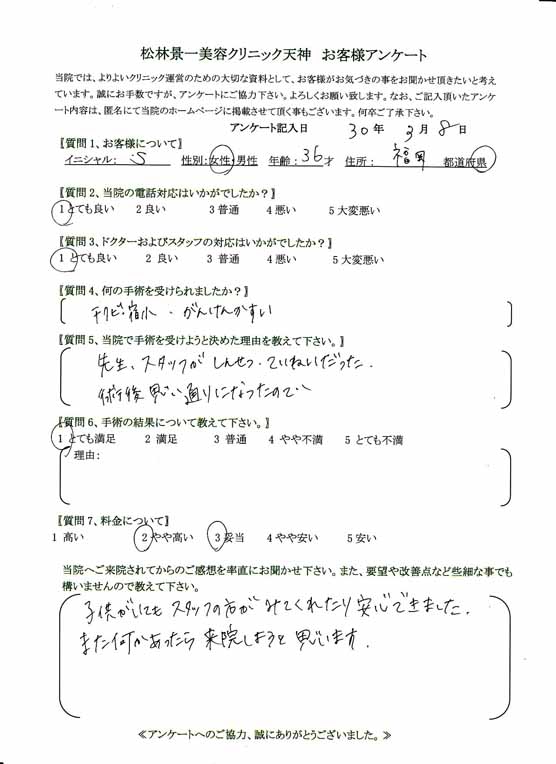 松林景一美容クリニック天神 お客様アンケート
当院では、よりよいクリニック運営のための大切な資料として、お客様がお気づきの事をお聞かせ頂きたいと考え
ています。誠にお手数ですが、アンケートにご協力下さい。よろしくお願い致します。なお、ご記入頂いたアンケ
ート内容は、匿名にて当院のホームページに掲載させて頂く事もございます。何卒ご了承下さい。
アンケート記入日 30年 3月 8日
〖質問1、お客様について〗
イニシャル: S 性別:女性・男性 年齢:36才 住所: 福岡 都道府県
〖質問2、当院の電話対応はいかがでしたか?〗
1とても良い 2良い 3普通 4悪い 5大変悪い
〖質問3、ドクターおよびスタッフの対応はいかがでしたか?〗
1とても良い 2 良い 3 普通 4悪い 5大変悪い
〖質問4、何の手術を受けられましたか?〗
・がんけんかすい
〖質問5、当院で手術を受けようと決めた理由を教えて下さい。〗
先生、スタッフがしんせつ、ていねいだった.
術後思い通りになったので
〖質問6、手術の結果について教えて下さい。〗
1とても満足 2 満足 3 普通 4 やや不満 5 とても不満
理由:
〖質問7、料金について〗
1 高い 2やや高い 3妥当 4やや安い 5安い
当院へご来院されてからのご感想を率直にお聞かせ下さい。また、要望や改善点など些細な事でも
構いませんので教えて下さい。
子供が スタッフの方が みてくれたり安心できました.
また何かあったら来院しようと思います.
≪アンケートへのご協力、誠にありがとうございました。≫